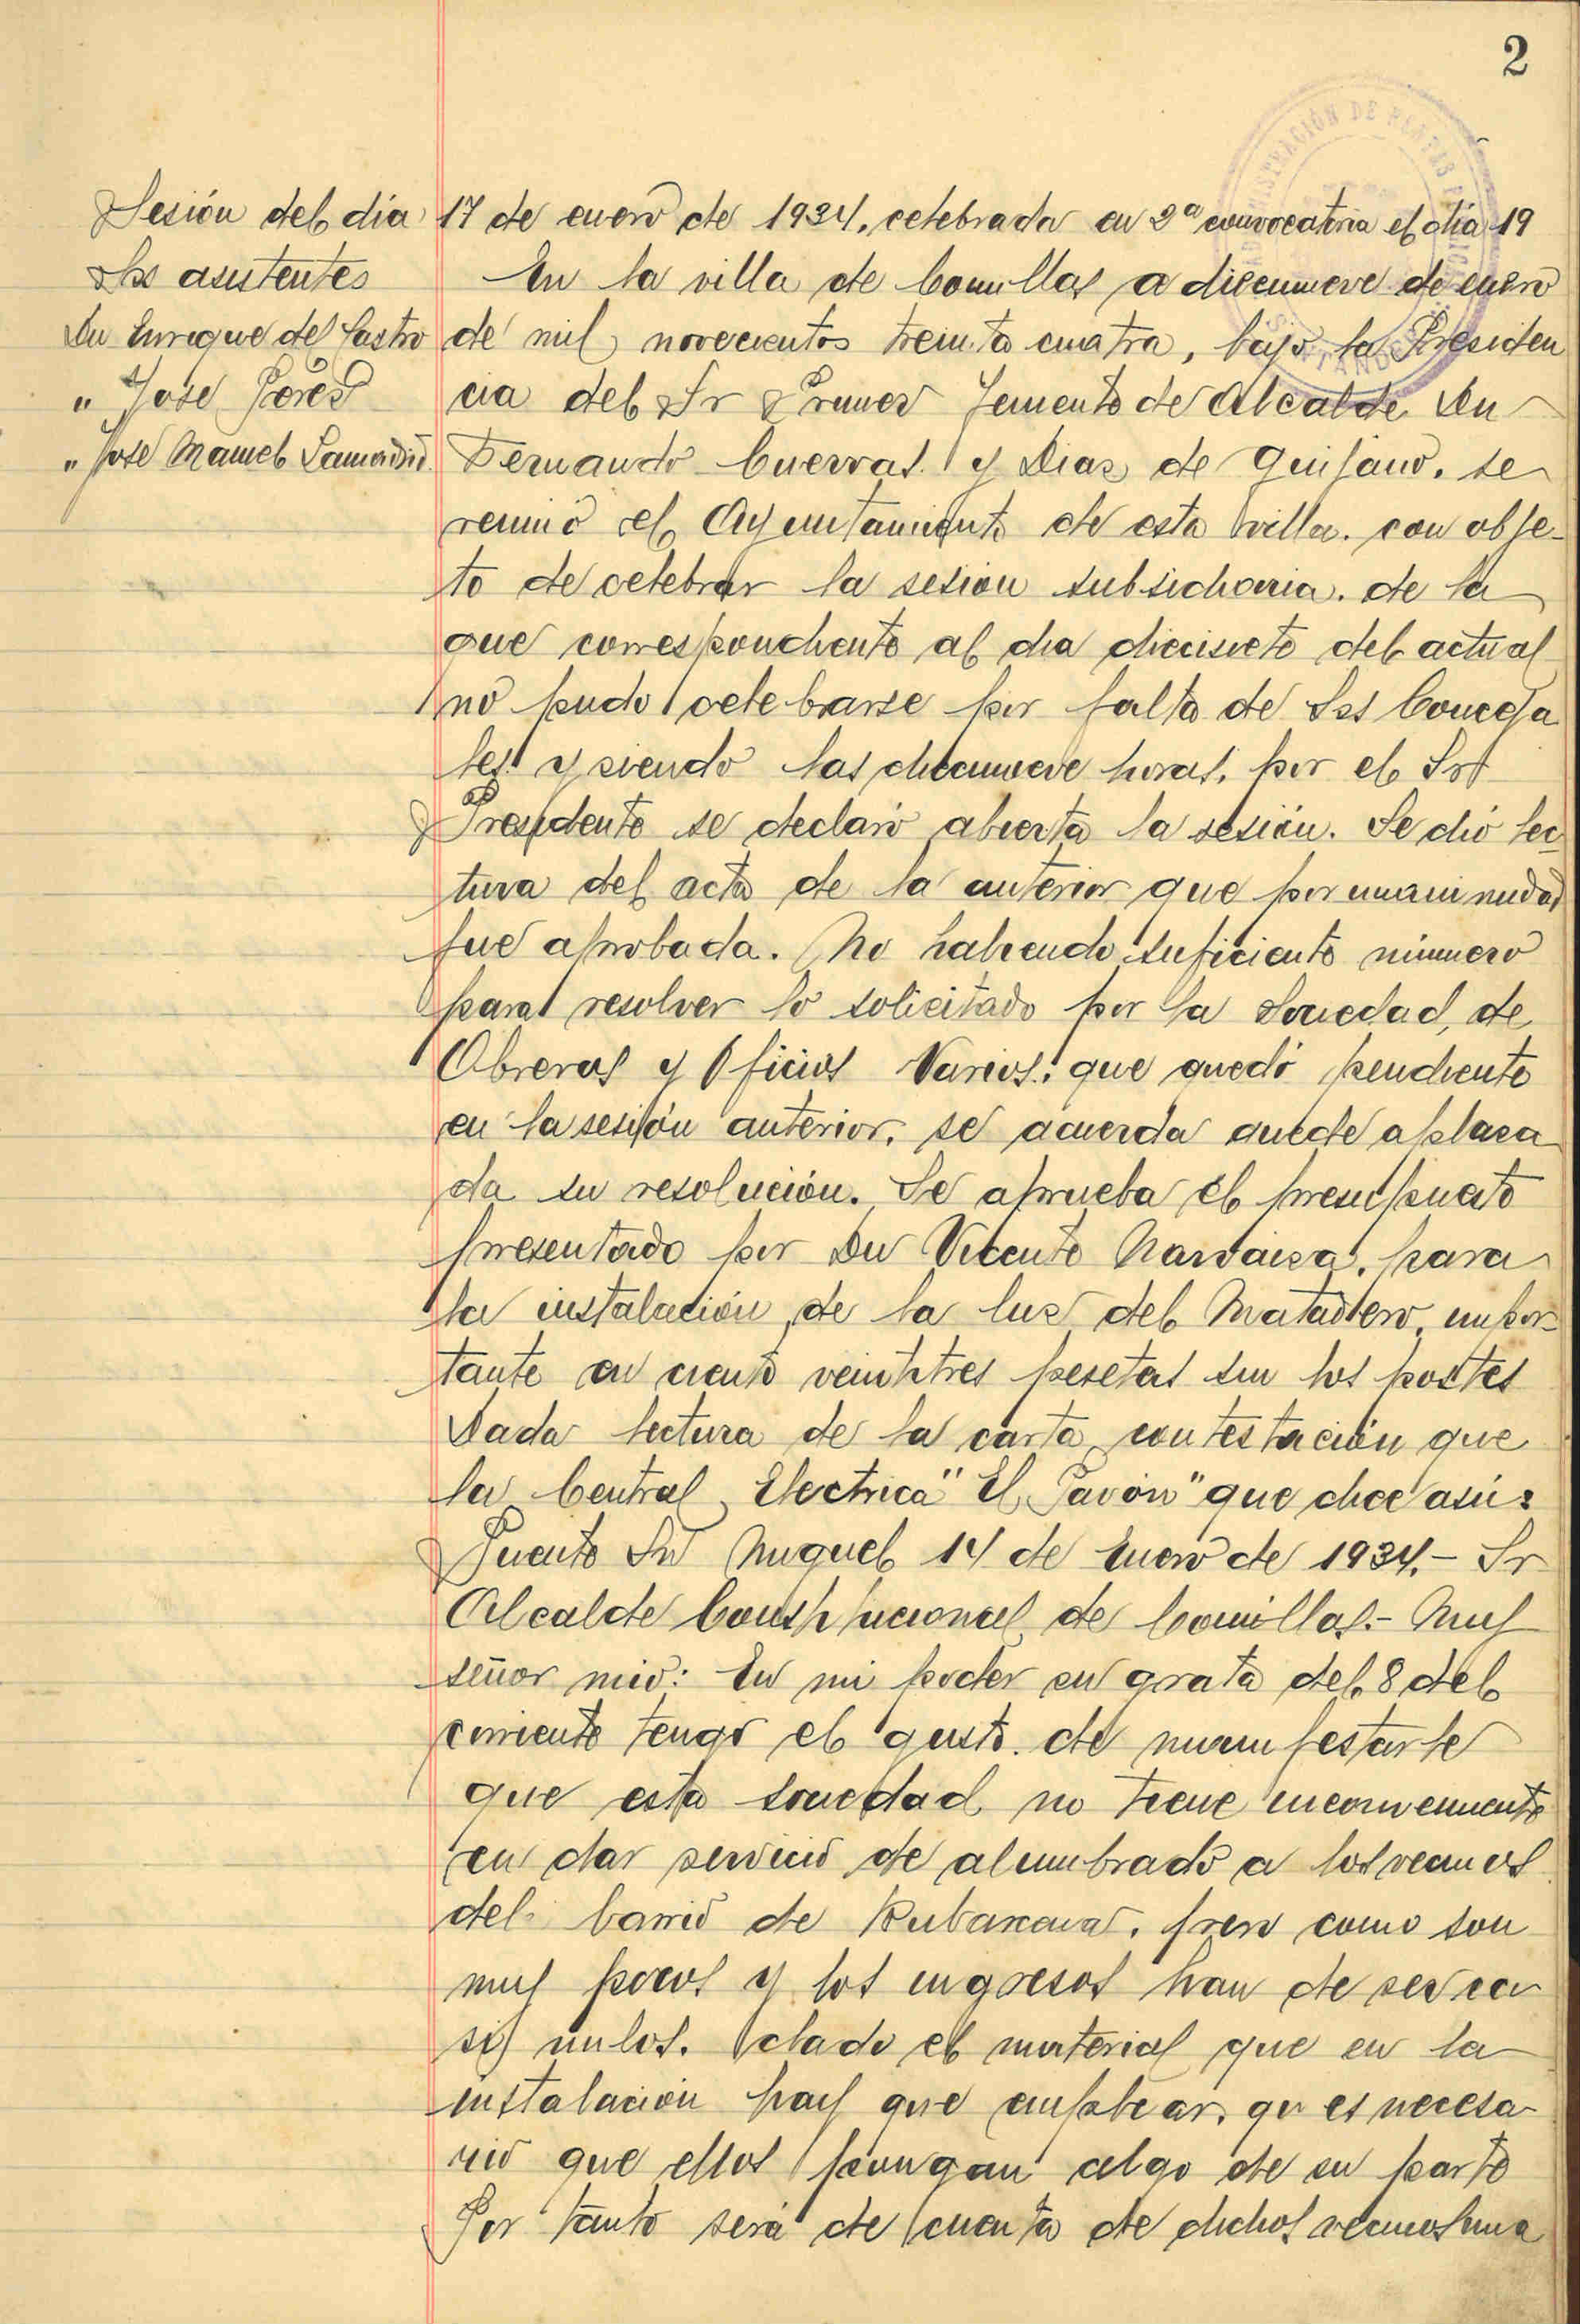 2
Sesión del día 17 de enero de 1934, celebrada en 2ª convocatoria el día 19
Srs asistentes
Dn Enrique del Castro
" Jose Peres
" Jose Manuel Lamadrid
En la villa de Comillas a diecinueve de enero
de mil novecientos treinta cuatro, bajo la Presiden
cia del Sr Primer Teniente de Alcalde Dn
Fernando Cuerras y Dias de Quijano, se
reunió el Ayuntamiento de esta villa. con obje-
to de celebrar la sesión subsidiaria. de la
que correspondiente al dia diecisiete del actual
no pudo celebrarse por falta de Srs Conceja
les y siendo las diecinueve horas, por el Sr
Presidente se declaró abierta la sesión. Se dió lec
tura del acta de la anterior que por unanimidad
fue aprobada. No habiendo suficiente número
para resolver lo solicitado por la Sociedad, de
Obreros y Oficios Varios, que quedó pendiente
en la sesión anterior, se acuerda quede aplaza
da su resolución. Se aprueba el presupuesto
presentado por Dn Vicente para
la instalación de la luz del Matadero, impor-
tante en ciento veintitres pesetas sin los postes
Dada lectura de la carta contestación que
la Central Electrica "El Pavón" que dice asi:
Puente Sn Miguel 14 de Enero de 1934.- Sr
Alcalde Constitucional de Comillas.- Muy
señor mio: En mi poder su grata del 8 del
corriente tengo el gusto. de manifestarle
que esta sociedad no tiene inconveniente
en dar servicio de alumbrado a los vecinos
del barrio de Rubarcena, pero como son
muy pocos y los ingresos han de ser ca
si nulos. dado el material que en la
instalación hay que emplear, qu es necesa
rio que ellos pongan algo de su parte
Por tanto será de cuenta de dichos vecinos una